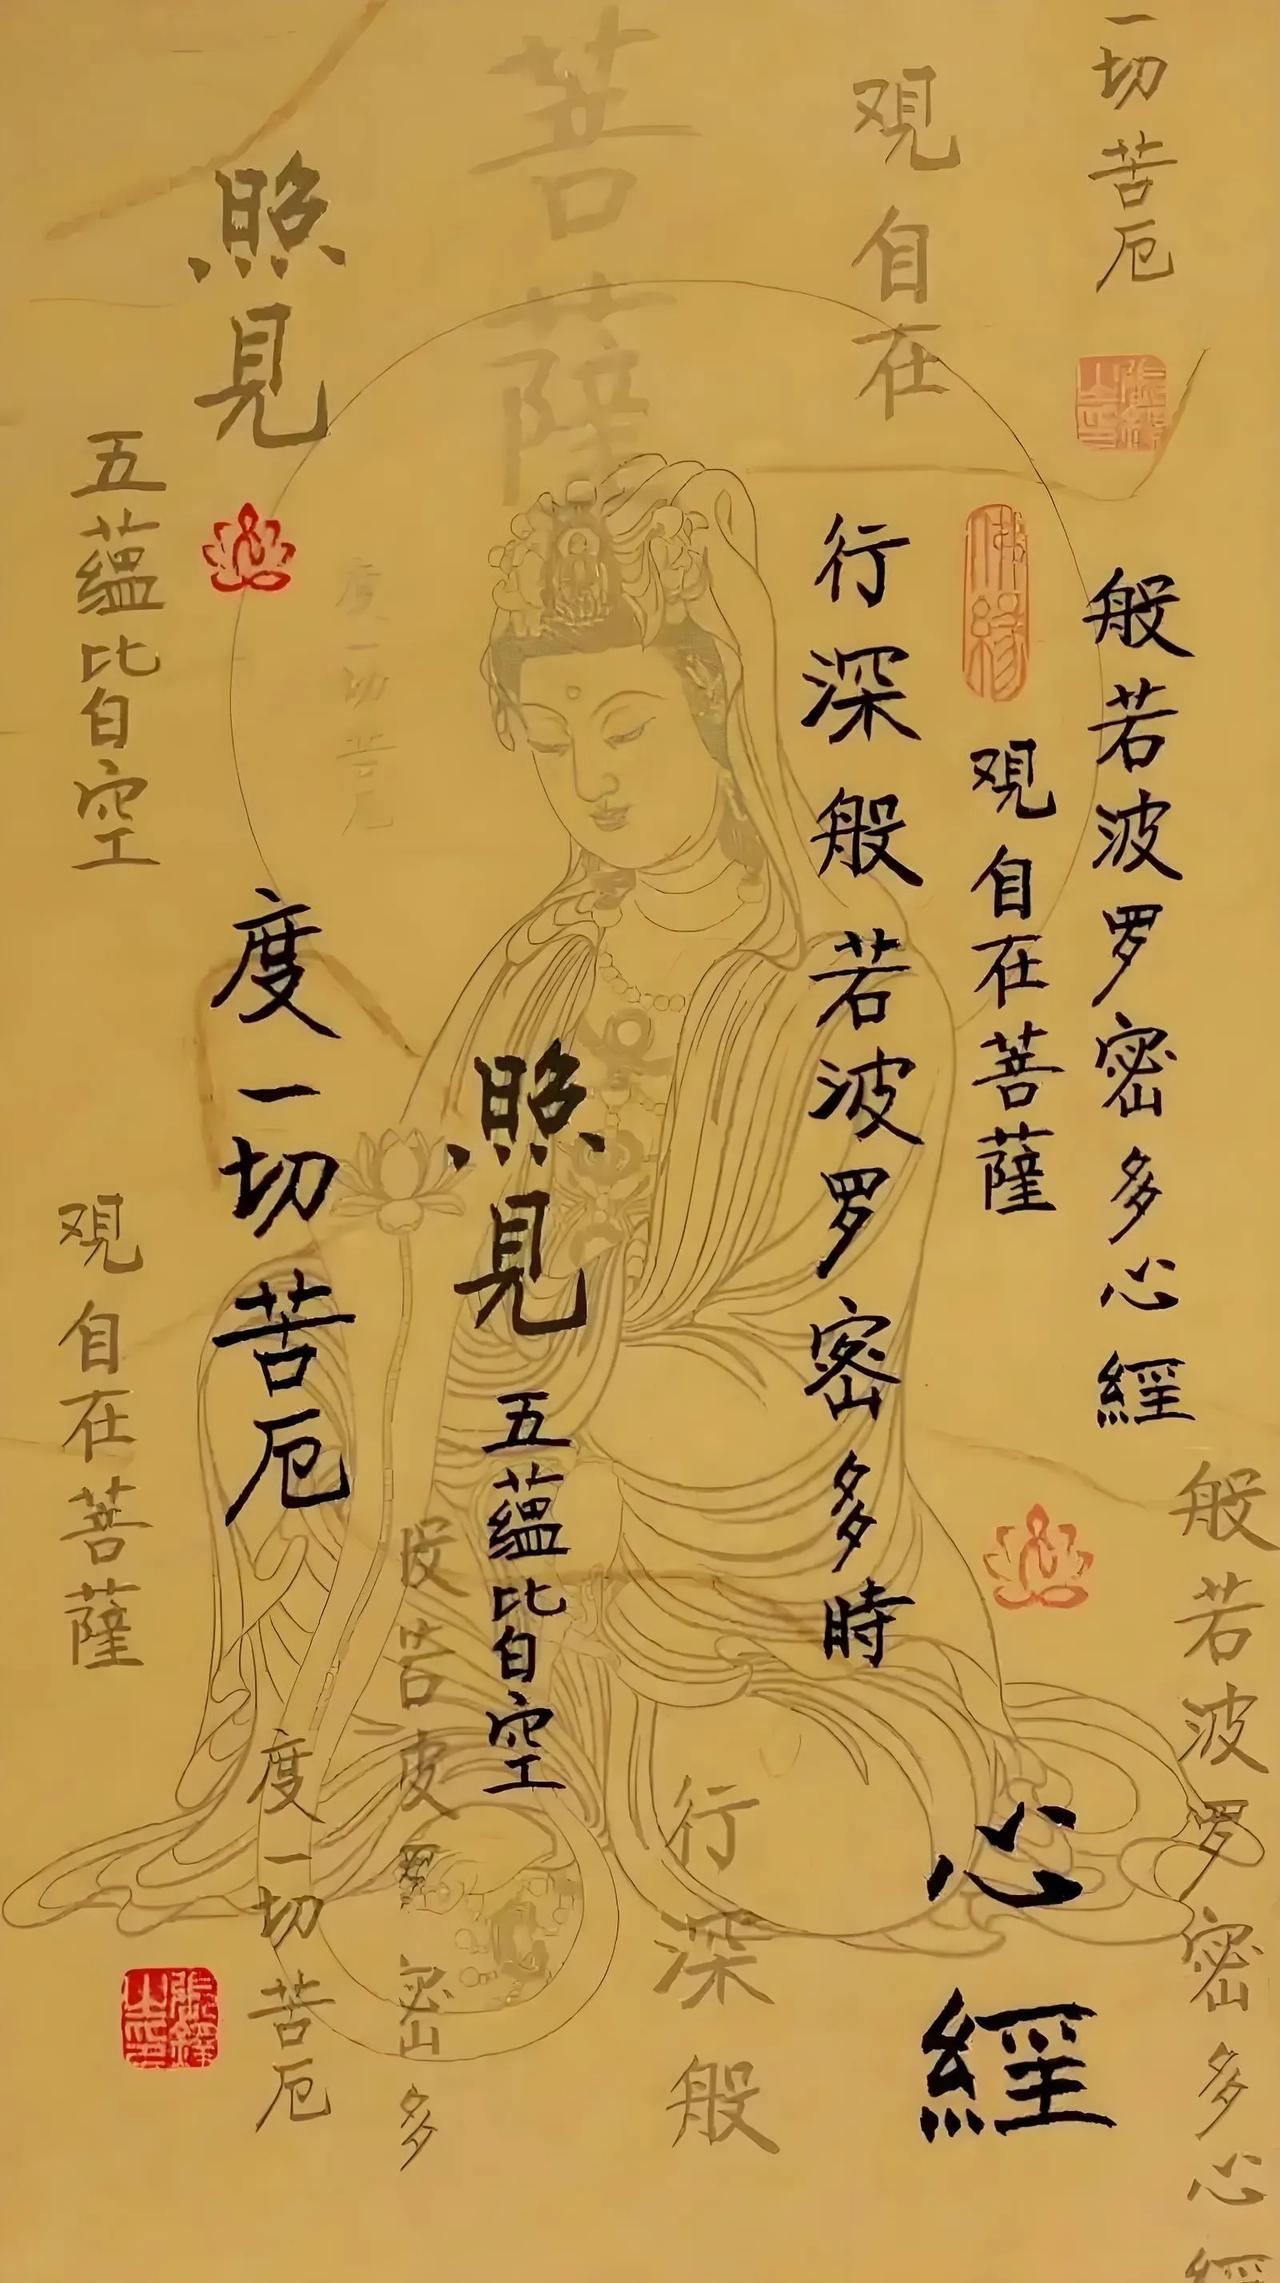 一切苦厄
般若波罗密多心經
般若波罗密多心經
佛缘
观自在菩薩
观自在
行深般若波罗密多時
心經
行深般
菩薩
照見
五蕴皆空
度一切苦厄
般若波罗密多
照見
度一切苦厄
度一切苦厄
五蕴皆空
观自在菩薩